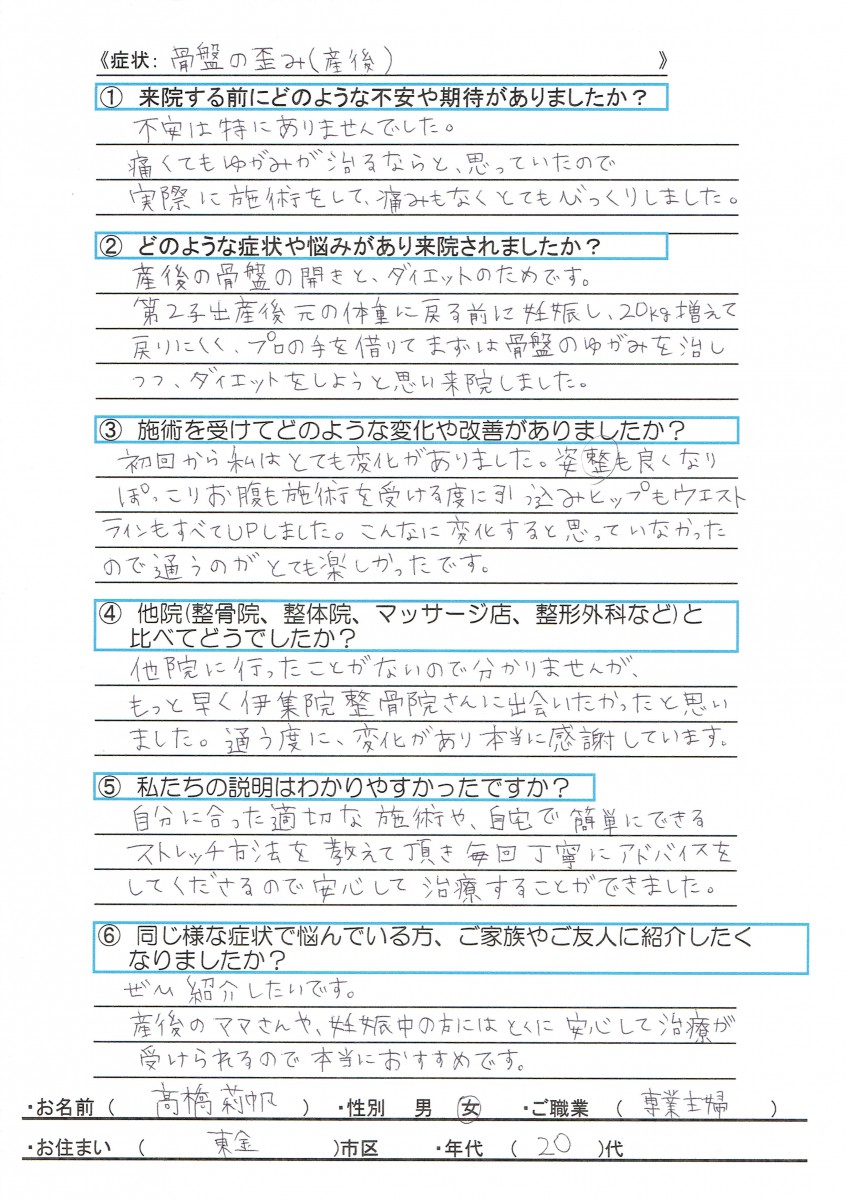 《症状: 骨盤の歪み(産後) 》
① 来院する前にどのような不安や期待がありましたか？
不安は特にありませんでした。
痛くてもゆがみが治るならと、思っていたので
実際に施術をして、痛みもなくとてもびっくりしました。
② どのような症状や悩みがあり来院されましたか？
産後の骨盤の開きと、ダイエットのためです。
第2子出産後元の体重に戻る前に妊娠し、20kg増えて
戻りにくく、プロの手を借りてまずは骨盤のゆがみを治し
つつ、ダイエットをしようと思い来院しました。
③ 施術を受けてどのような変化や改善がありましたか？
初回から私はとても変化がありました。姿整も良くなり
ぽっこりお腹も施術を受ける度に引っ込みヒップもウエスト
ラインもすべてUPしました。こんなに変化すると思っていなかった
ので通うのがとても楽しかったです。
④ 他院(整骨院、整体院、マッサージ店、整形外科など)と
比べてどうでしたか？
他院に行ったことがないので分かりませんが、
もっと早く伊集院整骨院さんに出会いたかったと思い
ました。通う度に、変化があり本当に感謝しています。
⑤ 私たちの説明はわかりやすかったですか？
自分に合った適切な施術や、自宅で簡単にできる
ストレッチ方法を教えて頂き毎回丁寧にアドバイスを
してくださるので安心して治療することができました。
⑥ 同じ様な症状で悩んでいる方、ご家族やご友人に紹介したく
なりましたか？
ぜひ紹介したいです。
産後のママさんや、妊娠中の方にはとくに安心して治療が
受けられるので本当におすすめです。
・お名前 ( 高橋莉帆 ) ・性別 男 女 ・ご職業 ( 専業主婦 )
・お住まい ( 東金 )市区 ・年代 ( 20 )代